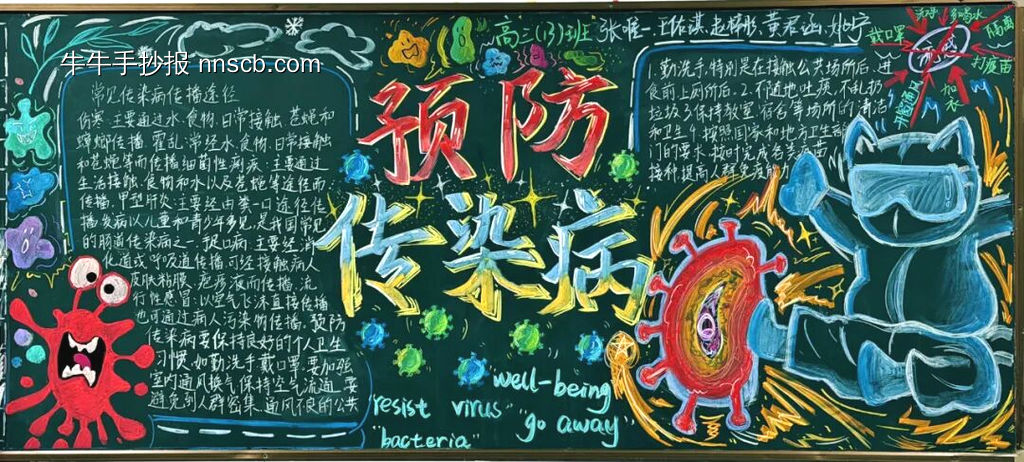 牛牛手抄报 nnscb.com
高三(13)班
预防
传染病
常见传染病传播途径
伤寒:主要通过水、食物、日常接触、苍蝇和
蟑螂传播、霍乱:常经水、食物、日常接触
和苍蝇等而传播细菌性痢疾:主要通过
生活接触、食物和水以及苍蝇等途径而
传播、甲型肝炎:主要经由粪一口途径传
播发病以儿童和青少年多见,是我国常见
的肠道传染病之一、手足口病:主要经消
化道或呼吸道传播可经接触病人
皮肤粘膜、疱疹液而传播、流
行性感冒:以空气飞沫直接传播
也可通过病人污染物传播、预防
传染病要保持良好的个人卫生
习惯、如勤洗手戴口罩、要加强
室内通风换气、保持空气流通、要
避免到人群密集、通风不良的公共
1.勤洗手,特别是在接触公共场所后、进
食前上厕所后、2.不随地吐痰、不乱扔
垃圾3.保持教室、宿舍等场所的清洁
和卫生4.按照国家和地方卫生部
门的要求、按时完成各类疫苗
接种提高人群免疫能力
戴口罩
洗手
多喝水
隔离
打疫苗
流感
开窗通风
resist virus
"bacteria"
well-being
"go away"